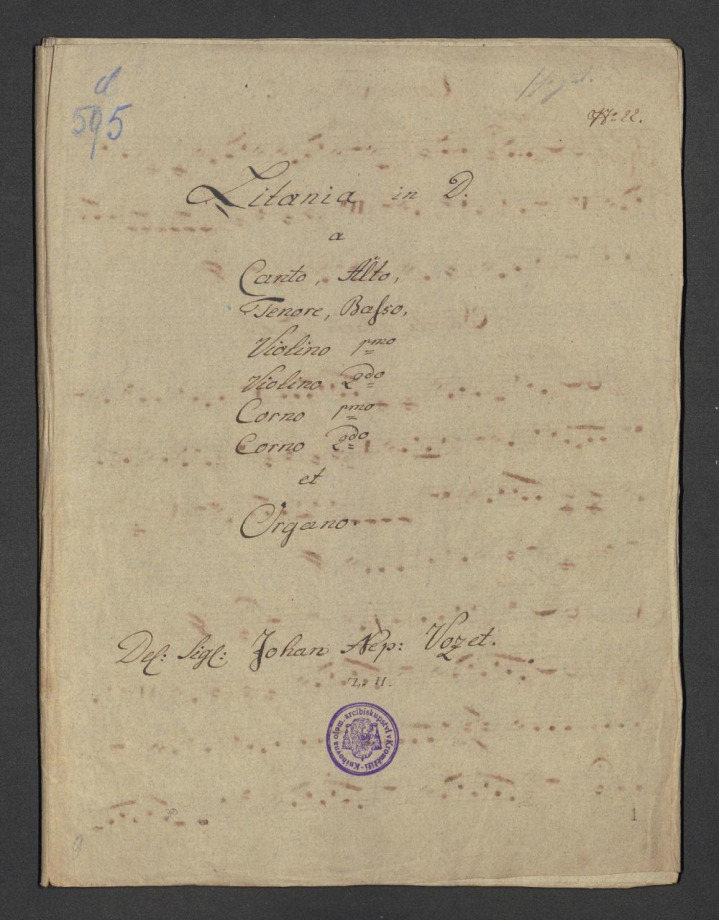 d
595
No 22.
Litania in D.
a
Canto, Alto,
Tenore, Basso,
Violino pmo
Violino 2do
Corno pmo
Corno 2do
et
Organo.
Del: Sigl: Johan Nep: Vozet.
Knihovna olom. arcibiskupství v Kroměříži
1